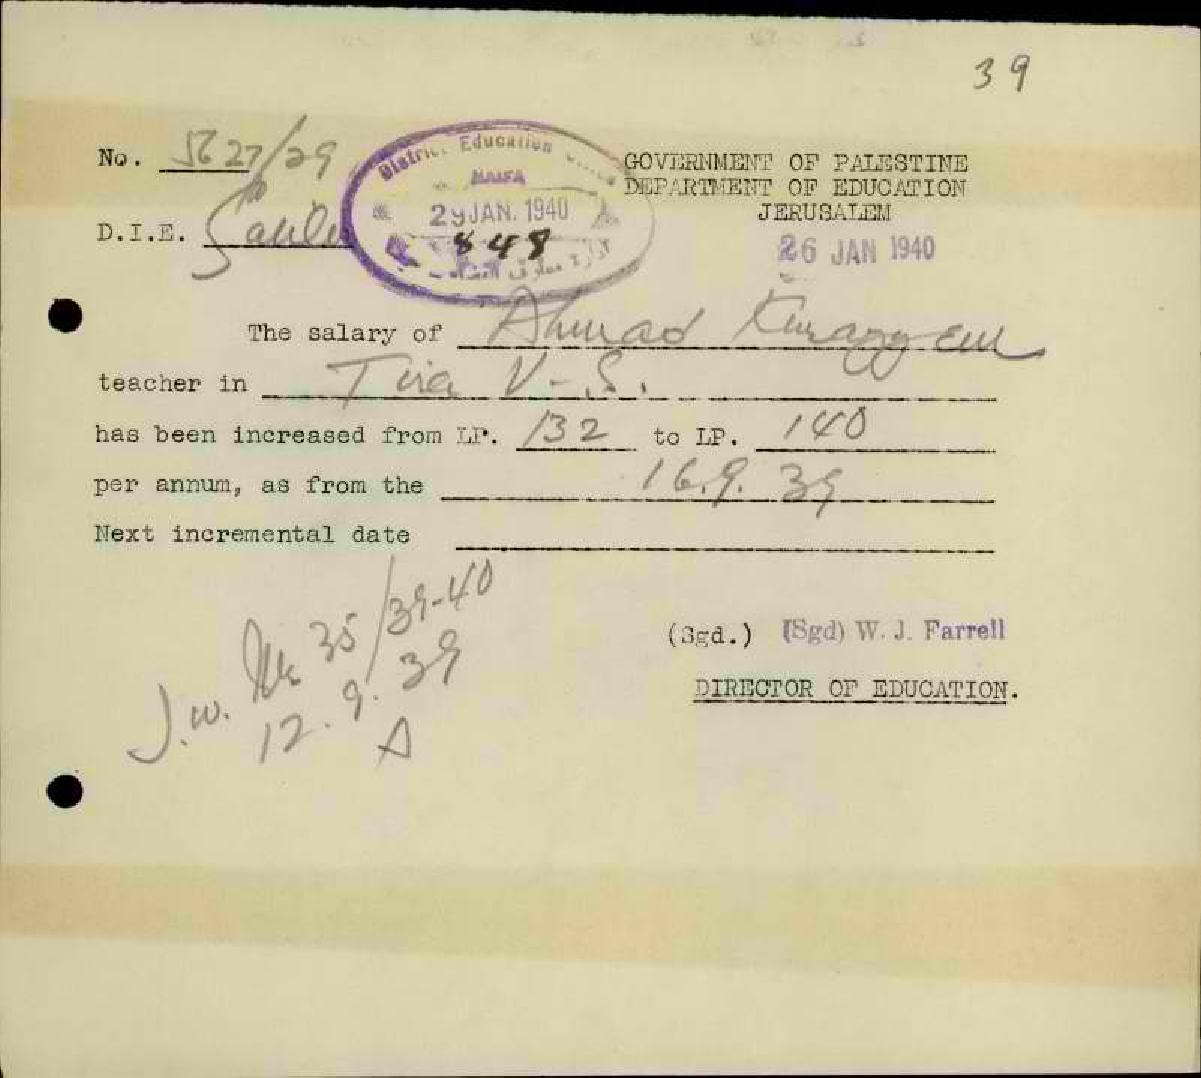 39
No. 5627/29
District Education
HAIFA
29 JAN. 1940
848
GOVERNMENT OF PALESTINE
DEPARTMENT OF EDUCATION
JERUSALEM
26 JAN 1940
D.I.E.
The salary of Ahmad
teacher in Tira V-S.
has been increased from LP. 132 to LP. 140
per annum, as from the 16.9.39
Next incremental date
J.w. 35/39-40
12.9.39
(Sgd.) (Sgd) W. J. Farrell
DIRECTOR OF EDUCATION.